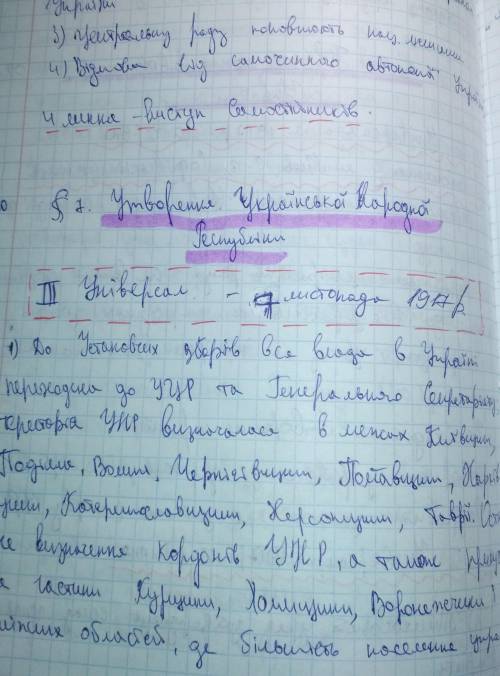 України
3) Центральну раду поповнюють нац. меншини
4) Відмова від самочинного автономії України
4 липня - виступ Самостійників.
§ 7. Утворення Української Народної
Республіки
III Універсал - 7 листопада 1917р.
1) До Установчих зборів вся влада в Україні
переходила до УЦР та Генерального Секретаріату
територія УНР визначалася в межах Київщини,
Поділля, Волині, Чернігівщини, Полтавщини, Харків
щини, Катеринославщини, Херсонщини, Таврії.
не визначення кордонів УНР, а також
а частини Курщини, Холмщини, Вороніжчини
областей, де більшість населення укра